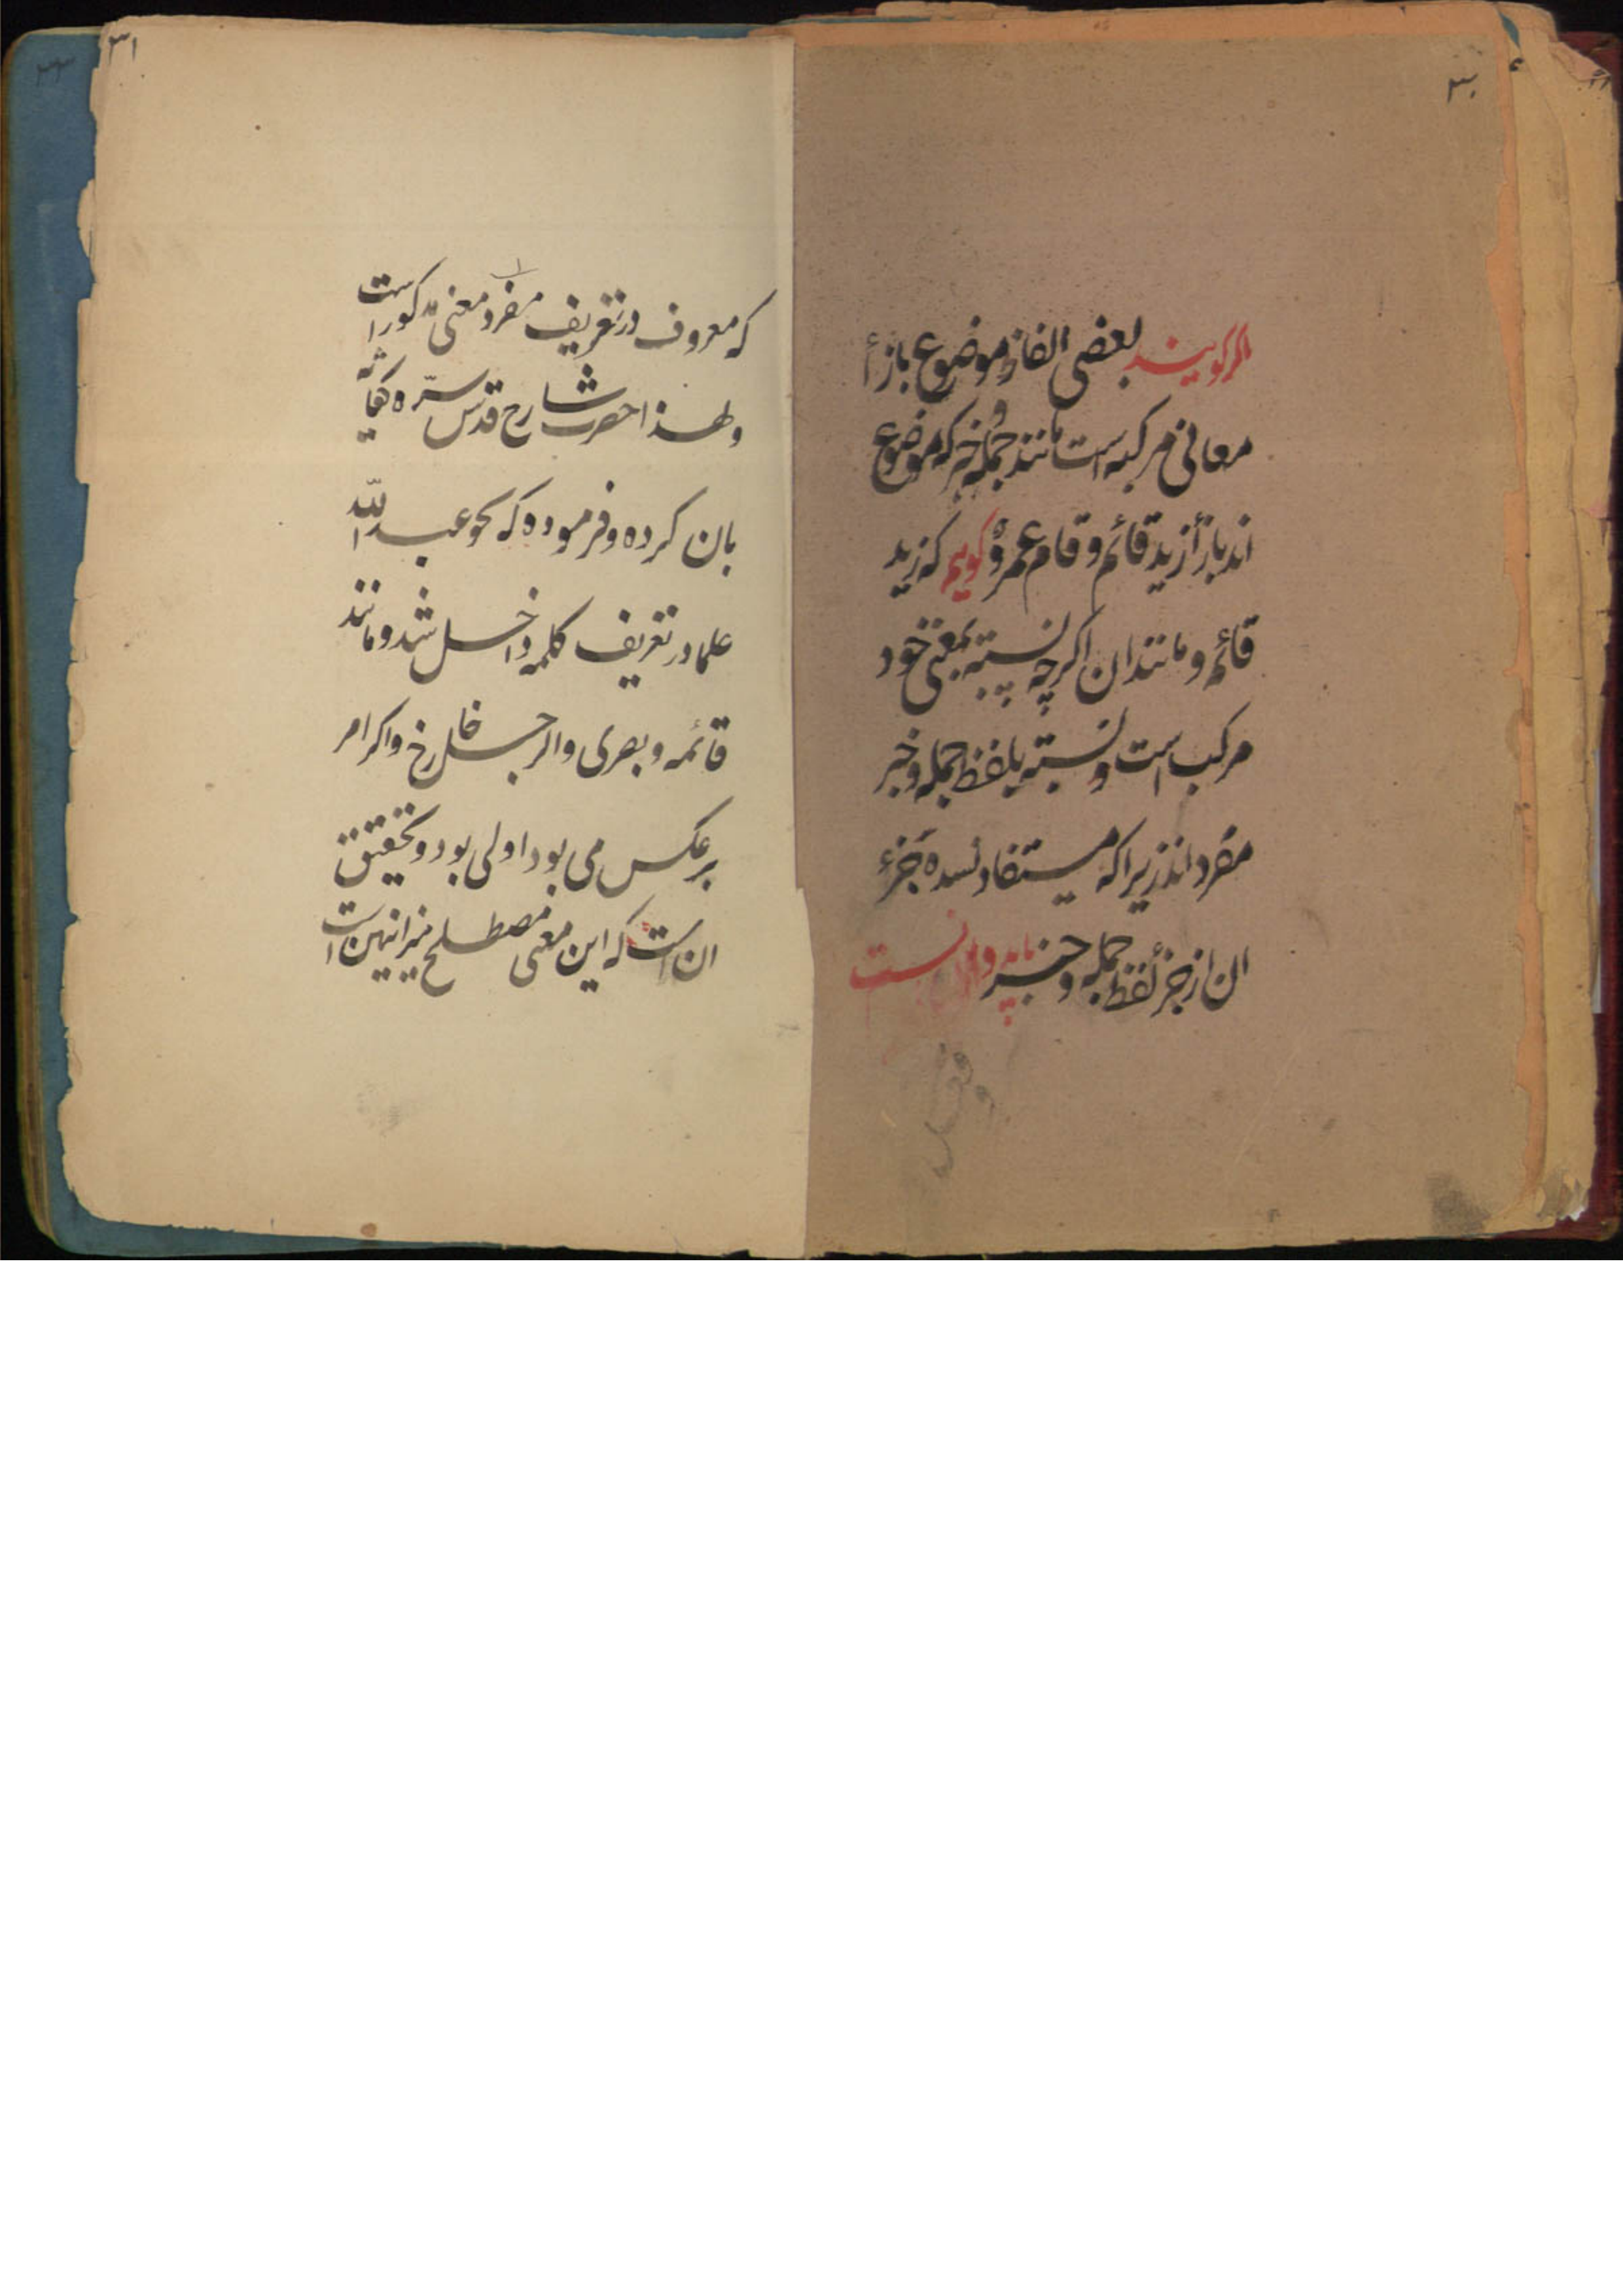 ۳۰
اگر گویند بعضی الفاظ موضوع بازأ
معانی مرکبه است مانند جمله خبر که موضوع
اند بازأ زید قائم و قام عمرو گویم که زید
قائم و مانند ان اکرچه نسبته بمعنی خود
مرکب است و نسبته بلفظ جمله و خبر
مفرد اند زیرا که مستفاد نشده جزء
ان از جزء لفظ جمله و خبر
۳۱
که معروف در تعریف مفرد معنی مذکور است
ولهذا حضرت شارح قدس سره
بان کرده و فرموده که نحو عبد الله
علما در تعریف کلمه داخل شد و مانند
قائمه و بصری والرجل خارج واکر امر
برعکس می بود اولی بود و تحقیق
ان است که این معنی مصطلح میزانیین است